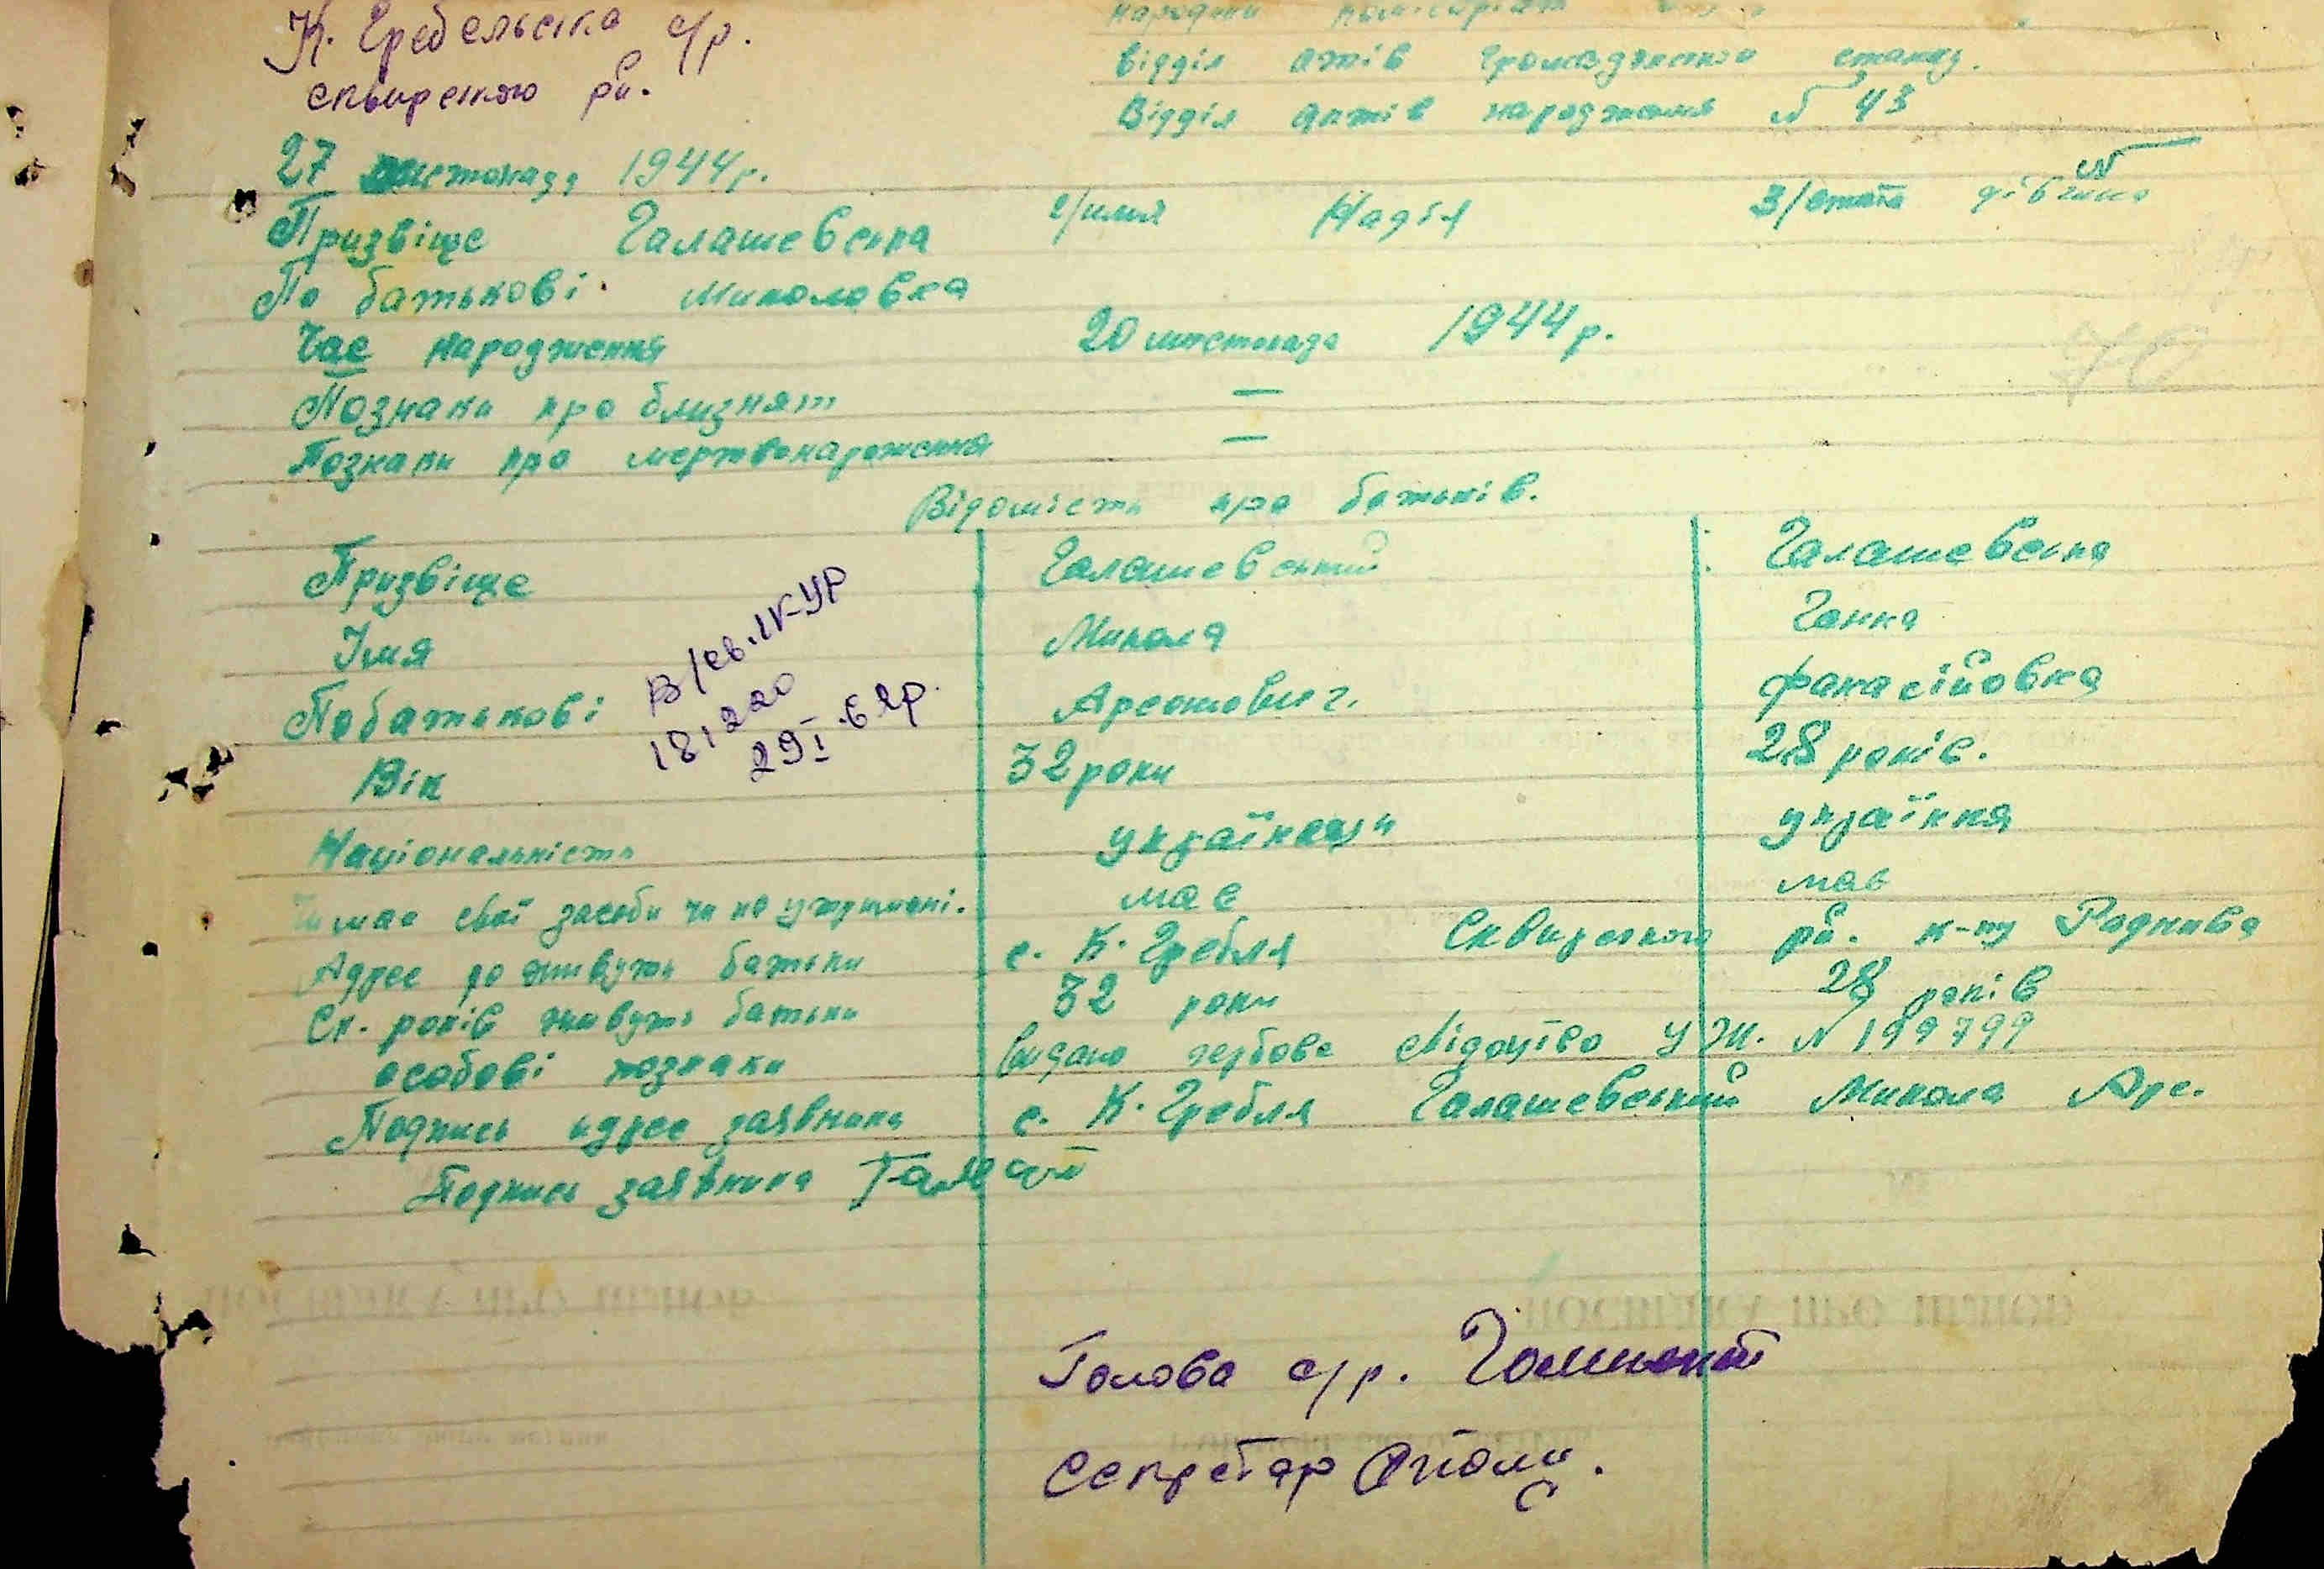 К. Гребельська с/р.
сквирского рй.
Відділ актів громадянського стану.
Відділ актів народження № 43
27 листопада 1944р.
Призвіще Галашевська 2/имя Надія 3/стать дівчина
По батькові Миколовна
Час народження 20 листопада 1944 р.
Познаки про близнят —
Познаки про мертвонародження —
Відомість про батьків.
Призвіще Галашевський Галашевська
Імя Микола Ганна
Побатькові Арсентович. Фанасійовна
В/св. IК-УР
181220
29 I. 62р.
Вік 32 роки 28 років.
Національність українець українка
Чи має свої засоби чи на утримані. має має
Адрес де живуть батьки с. К. Гребля Сквирского рй. к-пу Роднива
Ск. років живуть батьки 32 роки 28 років
особові познаки видано гербове свідоцтво УЖ. № 199799
Подпись адрес заявника с. К. Гребля Галашевський Микола Арс.
Подпись заявника
Голова с/р.
Секретар